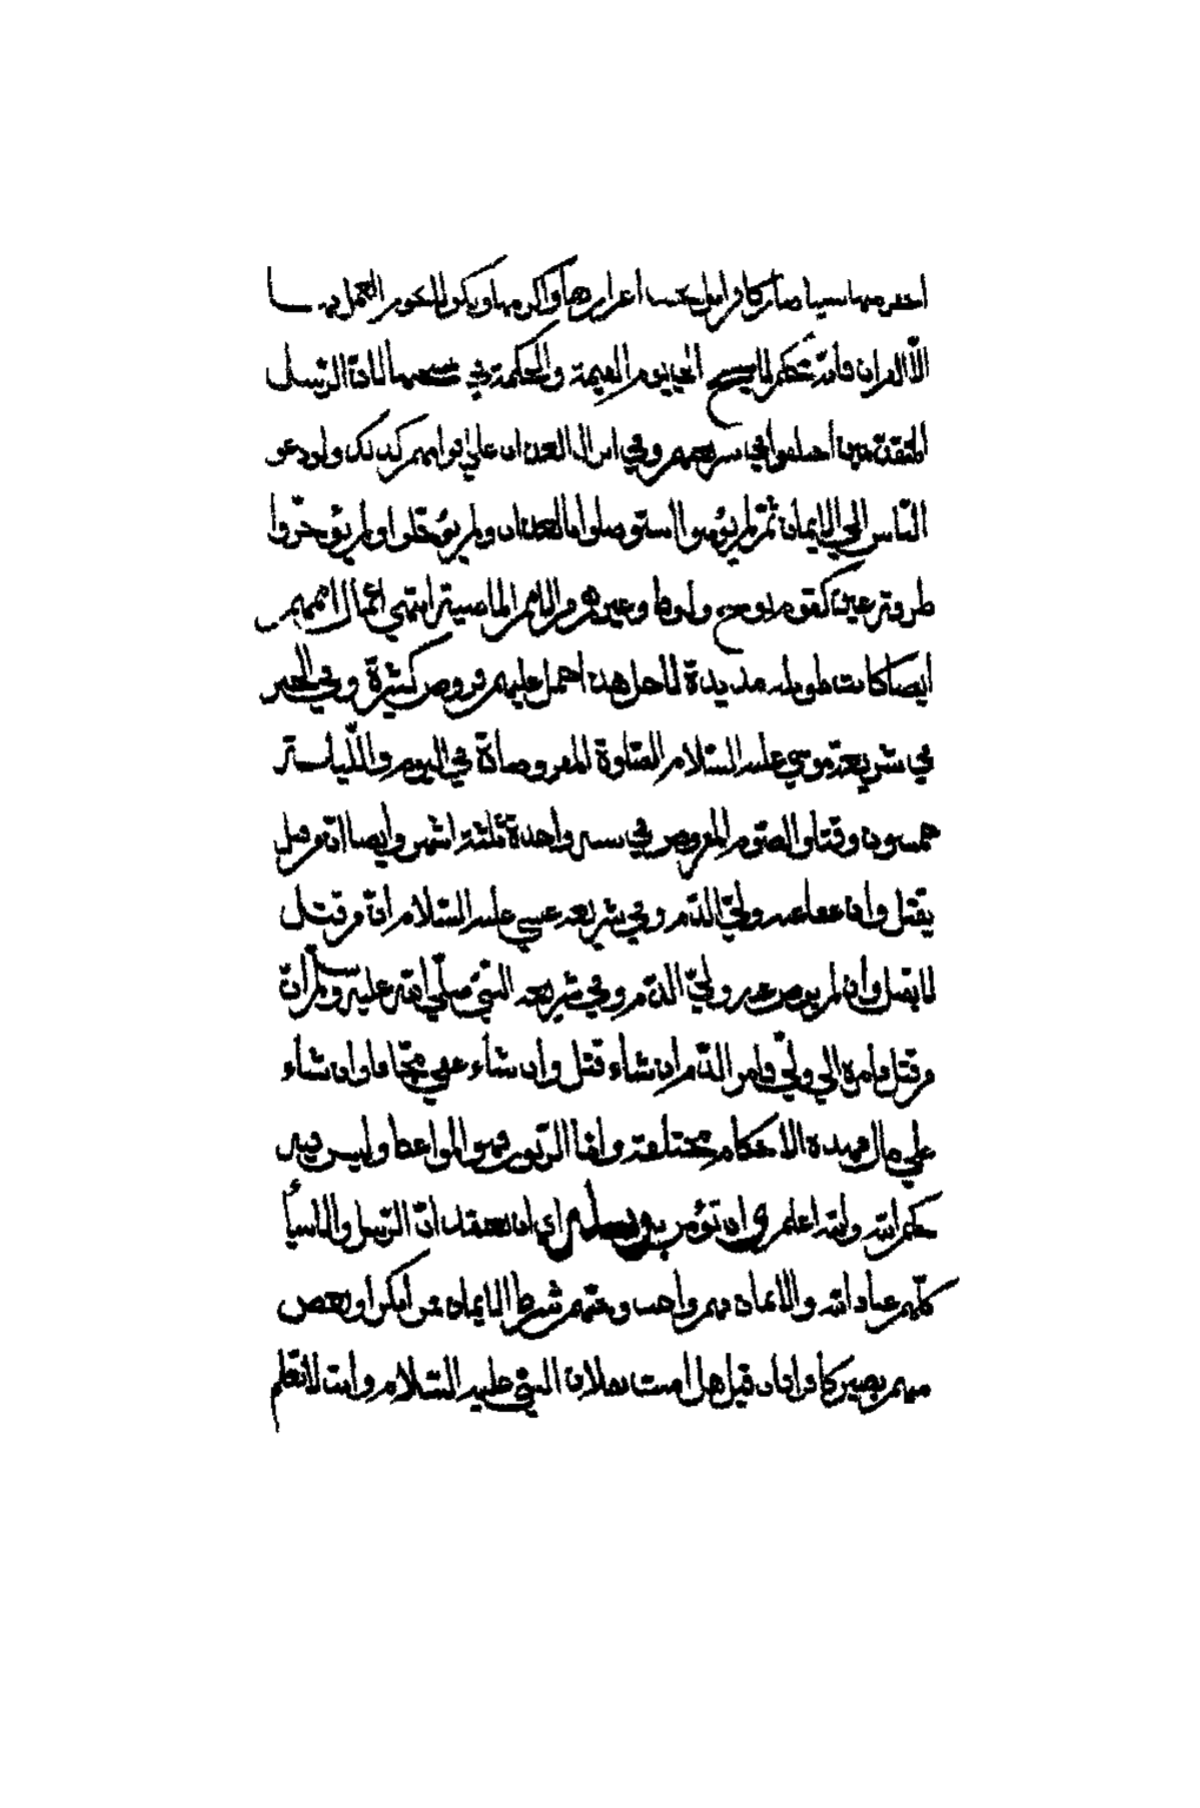 احقر منها شيئا صار كافرا ولو يجب اعزازها واكرامها ويكون المنسوخ العمل بها
الا القران فانه حكم لا ينسخ الي يوم القيمة والحكمة في نسخها لان الرسل
المتقدمين اختلفوا في شريعتهم وفي انزال العذاب علي اقوامهم كذلك ولو دعو
الناس الي الايمان ثم لم يؤمنوا استوصلوا بالعذاب ولم يؤجلوا ولم يؤخروا
طرفة عين كقوم نوح ولوط وغيرهم والامم الماضية اعمال اممهم
ايضا كانت طويلة مديدة لاجل هذا حمل عليهم فروض كثيرة وفي الخبر
في شريعة موسي عليه السلام الصلوة المفروضة في اليوم والليلة
خمسون وقتا والصوم المفروض في سنة واحدة ثلثة اشهر وايضا ان من قتل
يقتل وان عفا عنه ولي الدم وفي شريعة عيسي عليه السلام ان من قتل
لا يقتل وان لم يعف عنه ولي الدم وفي شريعة النبي صلي الله عليه وسلم ان
من قتل فامره الي ولي الدم ان شاء قتل وان شاء عفي مجانا وان شاء
علي مال فهذه الاحكام مختلفة واما الزبور فهو المواعظ وليس فيه
حكم الله والله اعلم وان تؤمن برسله اي ان تعتقد ان الرسل والانبياء
كلهم عباد الله والايمان بهم واجب وحبهم شرط الايمان من انكر او بغض
منهم يصير كافرا فان قيل هل امنت بفلان النبي عليه السلام وانت لا تعلم